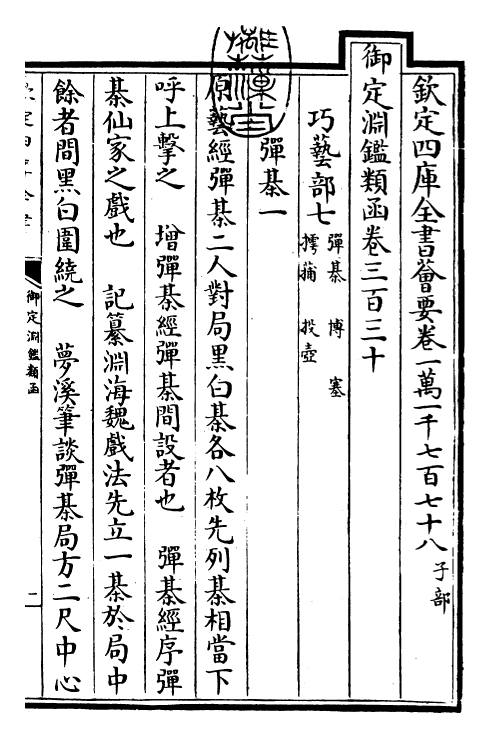 欽定四庫全書薈要卷一萬一千七百七十八 子部
御定淵鑑類函卷三百三十
巧藝部七 彈棊 博 塞
樗蒱 投壺
彈棊一
原藝經彈棊二人對局黑白棊各八枚先列棊相當下
呼上擊之 增彈棊經彈棊間設者也 彈棊經序彈
棊仙家之戲也 記纂淵海魏戲法先立一棊於局中
餘者間黑白圍繞之 夢溪筆談彈棊局方二尺中心
御定淵鑑類函